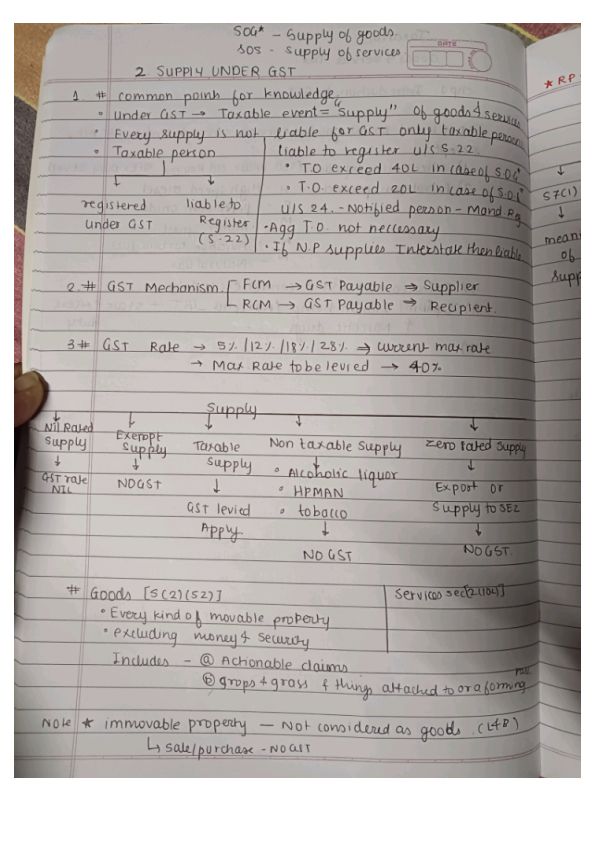 SOG* - Supply of goods
SOS - Supply of services
DATE
2. SUPPLY UNDER GST
1 # common points for knowledge
• Under GST → Taxable event = "Supply" of goods & services
• Every supply is not liable for GST only taxable person
• Taxable person
registered under GST
liable to Register (S.22)
liable to register u/s S.22
• T.O exceed 40L in case of S.O.G*
• T.O. exceed 20L in case of S.O.S*
U/S 24. - Notified person - Mand Reg
• Agg T.O. not neccessary
• If N.P supplies Interstate then liable
2.# GST Mechanism.
FCM → GST Payable ⇒ Supplier
RCM → GST Payable → Recipient.
3# GST Rate → 5% /12% /18% / 28% ⇒ current max rate
→ Max Rate to be levied → 40%
Supply
Nil Rated Supply
↓
GST rate NIL
Exempt Supply
↓
NO GST
Taxable Supply
↓
GST levied Apply
Non taxable Supply
• Alcoholic liquor
• HPMAN
• tobacco
↓
NO GST
Zero rated Supply
↓
Export or Supply to SEZ
↓
NO GST.
# Goods [S(2)(52)]
• Every kind of movable property
• excluding money & Security
Includes - ⓐ Actionable claims
ⓑ grops & grass & things attached to or a forming
Services sec[2(102)]
Note * immovable property — Not considered as goods. (L&B)
↳ sale/purchase - NO GST
* RP
↓
S7(1)
↓
mean
of
Supp